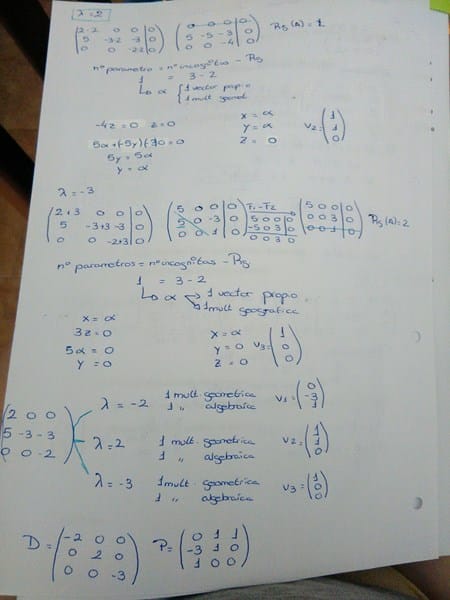 λ=2
(2-2 0 0 | 0) (0 0 0 | 0) Rg (A)= 1
(5 -3-2 -3 | 0) (5 -5 -3 | 0)
(0 0 -2-2 | 0) (0 0 -4 | 0)
nº parametro = nº incognitas - Rg
1 = 3 - 2
α { 1 vector propio
1 mult geomet
-4z=0 z=0
5α+(-5y)(-3)0=0
5y=5α
y=α
x=α
y=α
z= 0
V2=(1
1
0)
λ=-3
(2+3 0 0 | 0) (5 0 0 | 0) F1-F2 (5 0 0 | 0)
(5 -3+3 -3 | 0) (5 0 -3 | 0) 5 0 0 0 (0 0 3 | 0) Rg(A)=2
(0 0 -2+3 | 0) (0 0 1 | 0) -5 0 3 0 (0 0 1 | 0)
0 0 3 0
nº parametros = nº incognitas - Rg
1 = 3 - 2
α 1 vector propio
1 mult geografica
x=α
3z=0
5α=0
y=0
x=α
y=0
z=0
V3=(1
0
0)
(2 0 0)
(5 -3 -3)
(0 0 -2)
λ=-2 1 mult. geometrica V1=(0
1 " algebraica -3
1)
λ=2 1 mult. geometrica V2=(1
1 " algebraica 1
0)
λ=-3 1 mult. geometrica V3=(1
1 " algebraica 0
0)
D=(-2 0 0) P=(0 1 1)
(0 2 0) (-3 1 0)
(0 0 -3) (1 0 0)